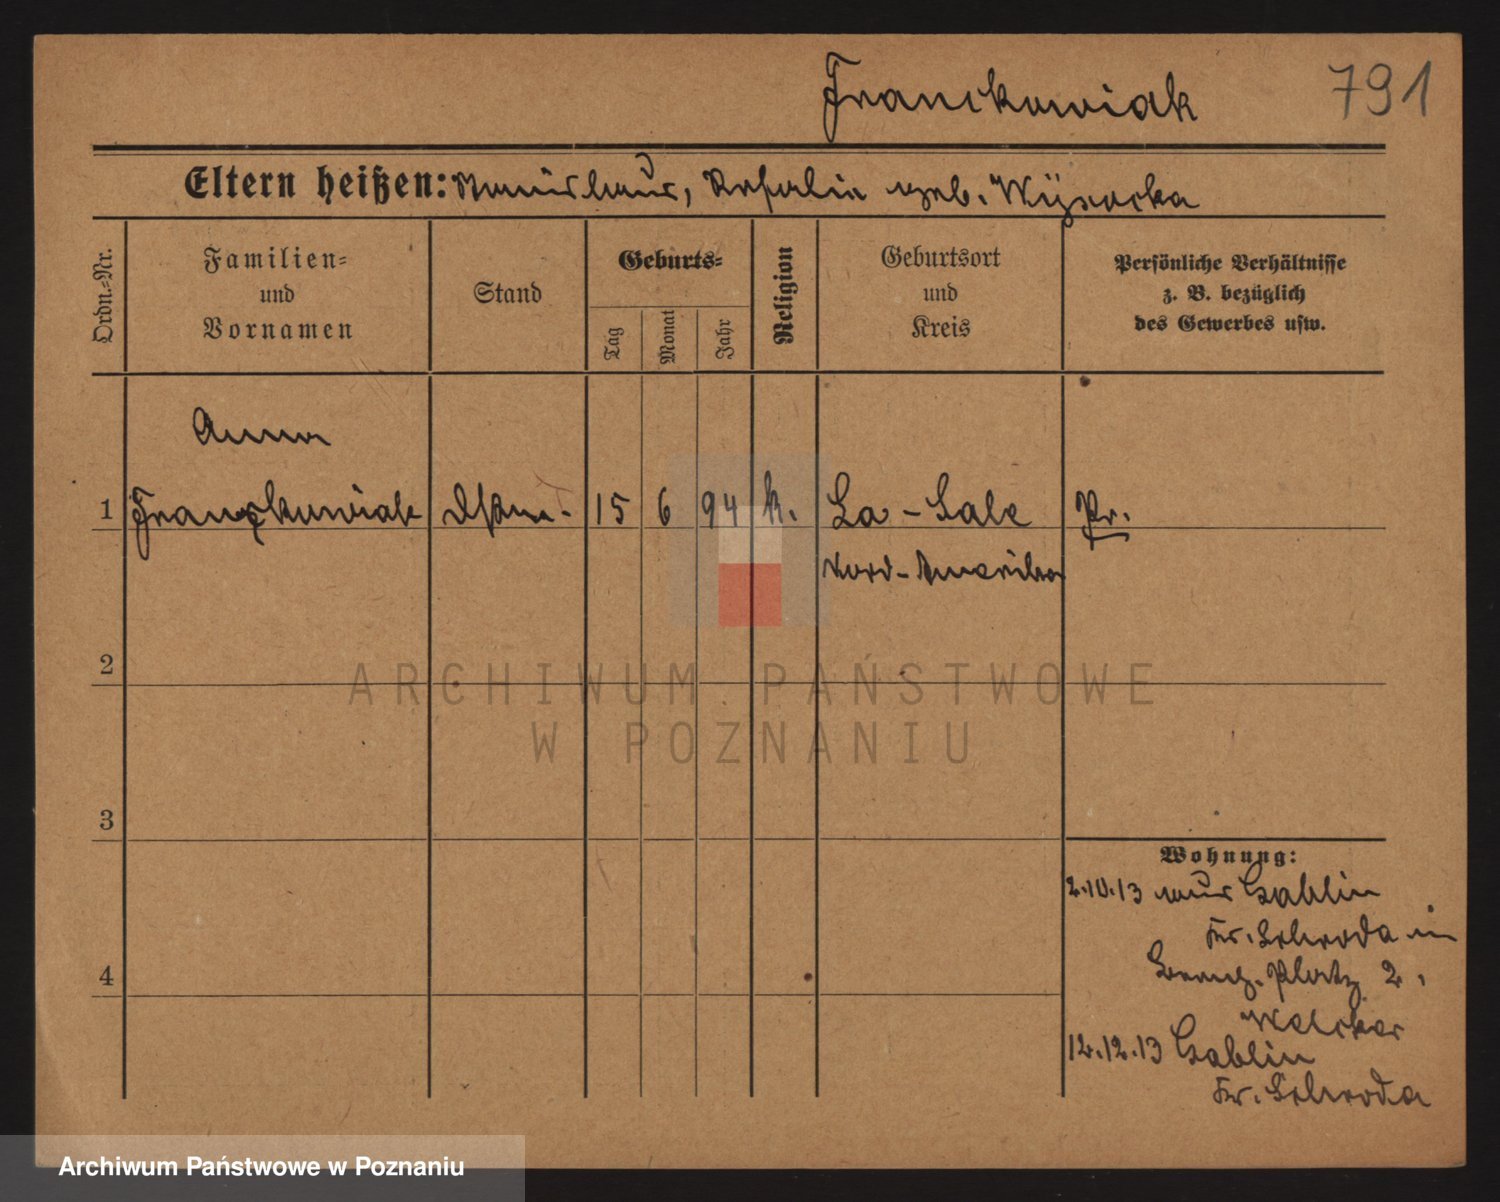 Franckowiak 791
Eltern heißen: Stanislaus, Rosalie geb. Wysocka
Ordn.-Nr.
Familien-
und
Vornamen
Stand
Geburts-
Tag
Monat
Jahr
Religion
Geburtsort
und
Kreis
Persönliche Verhältnisse
z. B. bezüglich
des Gewerbes usw.
Anna
1 Franckowiak 15 6 94 k. La-Sale Pr.
Nord-Amerika
2
3
4
Wohnung:
2.10.13 aus Gablin
Kr. Schroda in
Platz 2,
12.12.13 Gablin
Kr. Schroda
ARCHIWUM PAŃSTWOWE
W POZNANIU
Archiwum Państwowe w Poznaniu